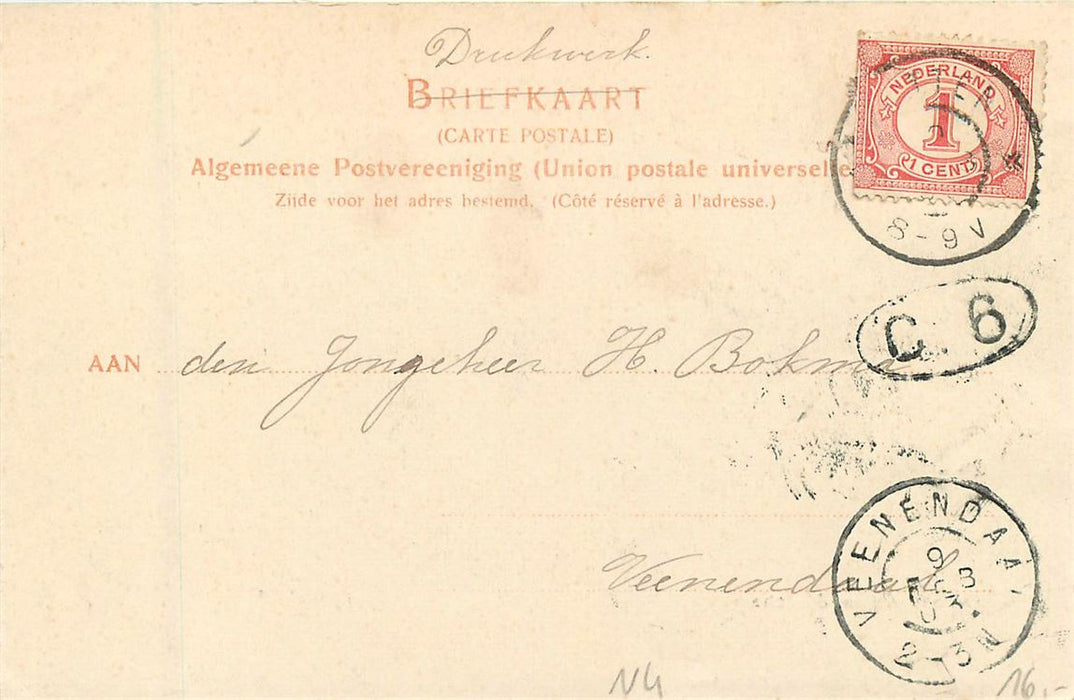 Drukwerk.
BRIEFKAART
(CARTE POSTALE)
Algemeene Postvereeniging (Union postale universelle
Zijde voor het adres bestemd. (Côté réservé à l'adresse.)
NEDERLAND
1
1 CENT
8-9 V
C. 6
AAN den Jongeheer H. Bokma
Veenendaal
VEENENDAAL
9
FEB
03
2-3N
N4
16.-